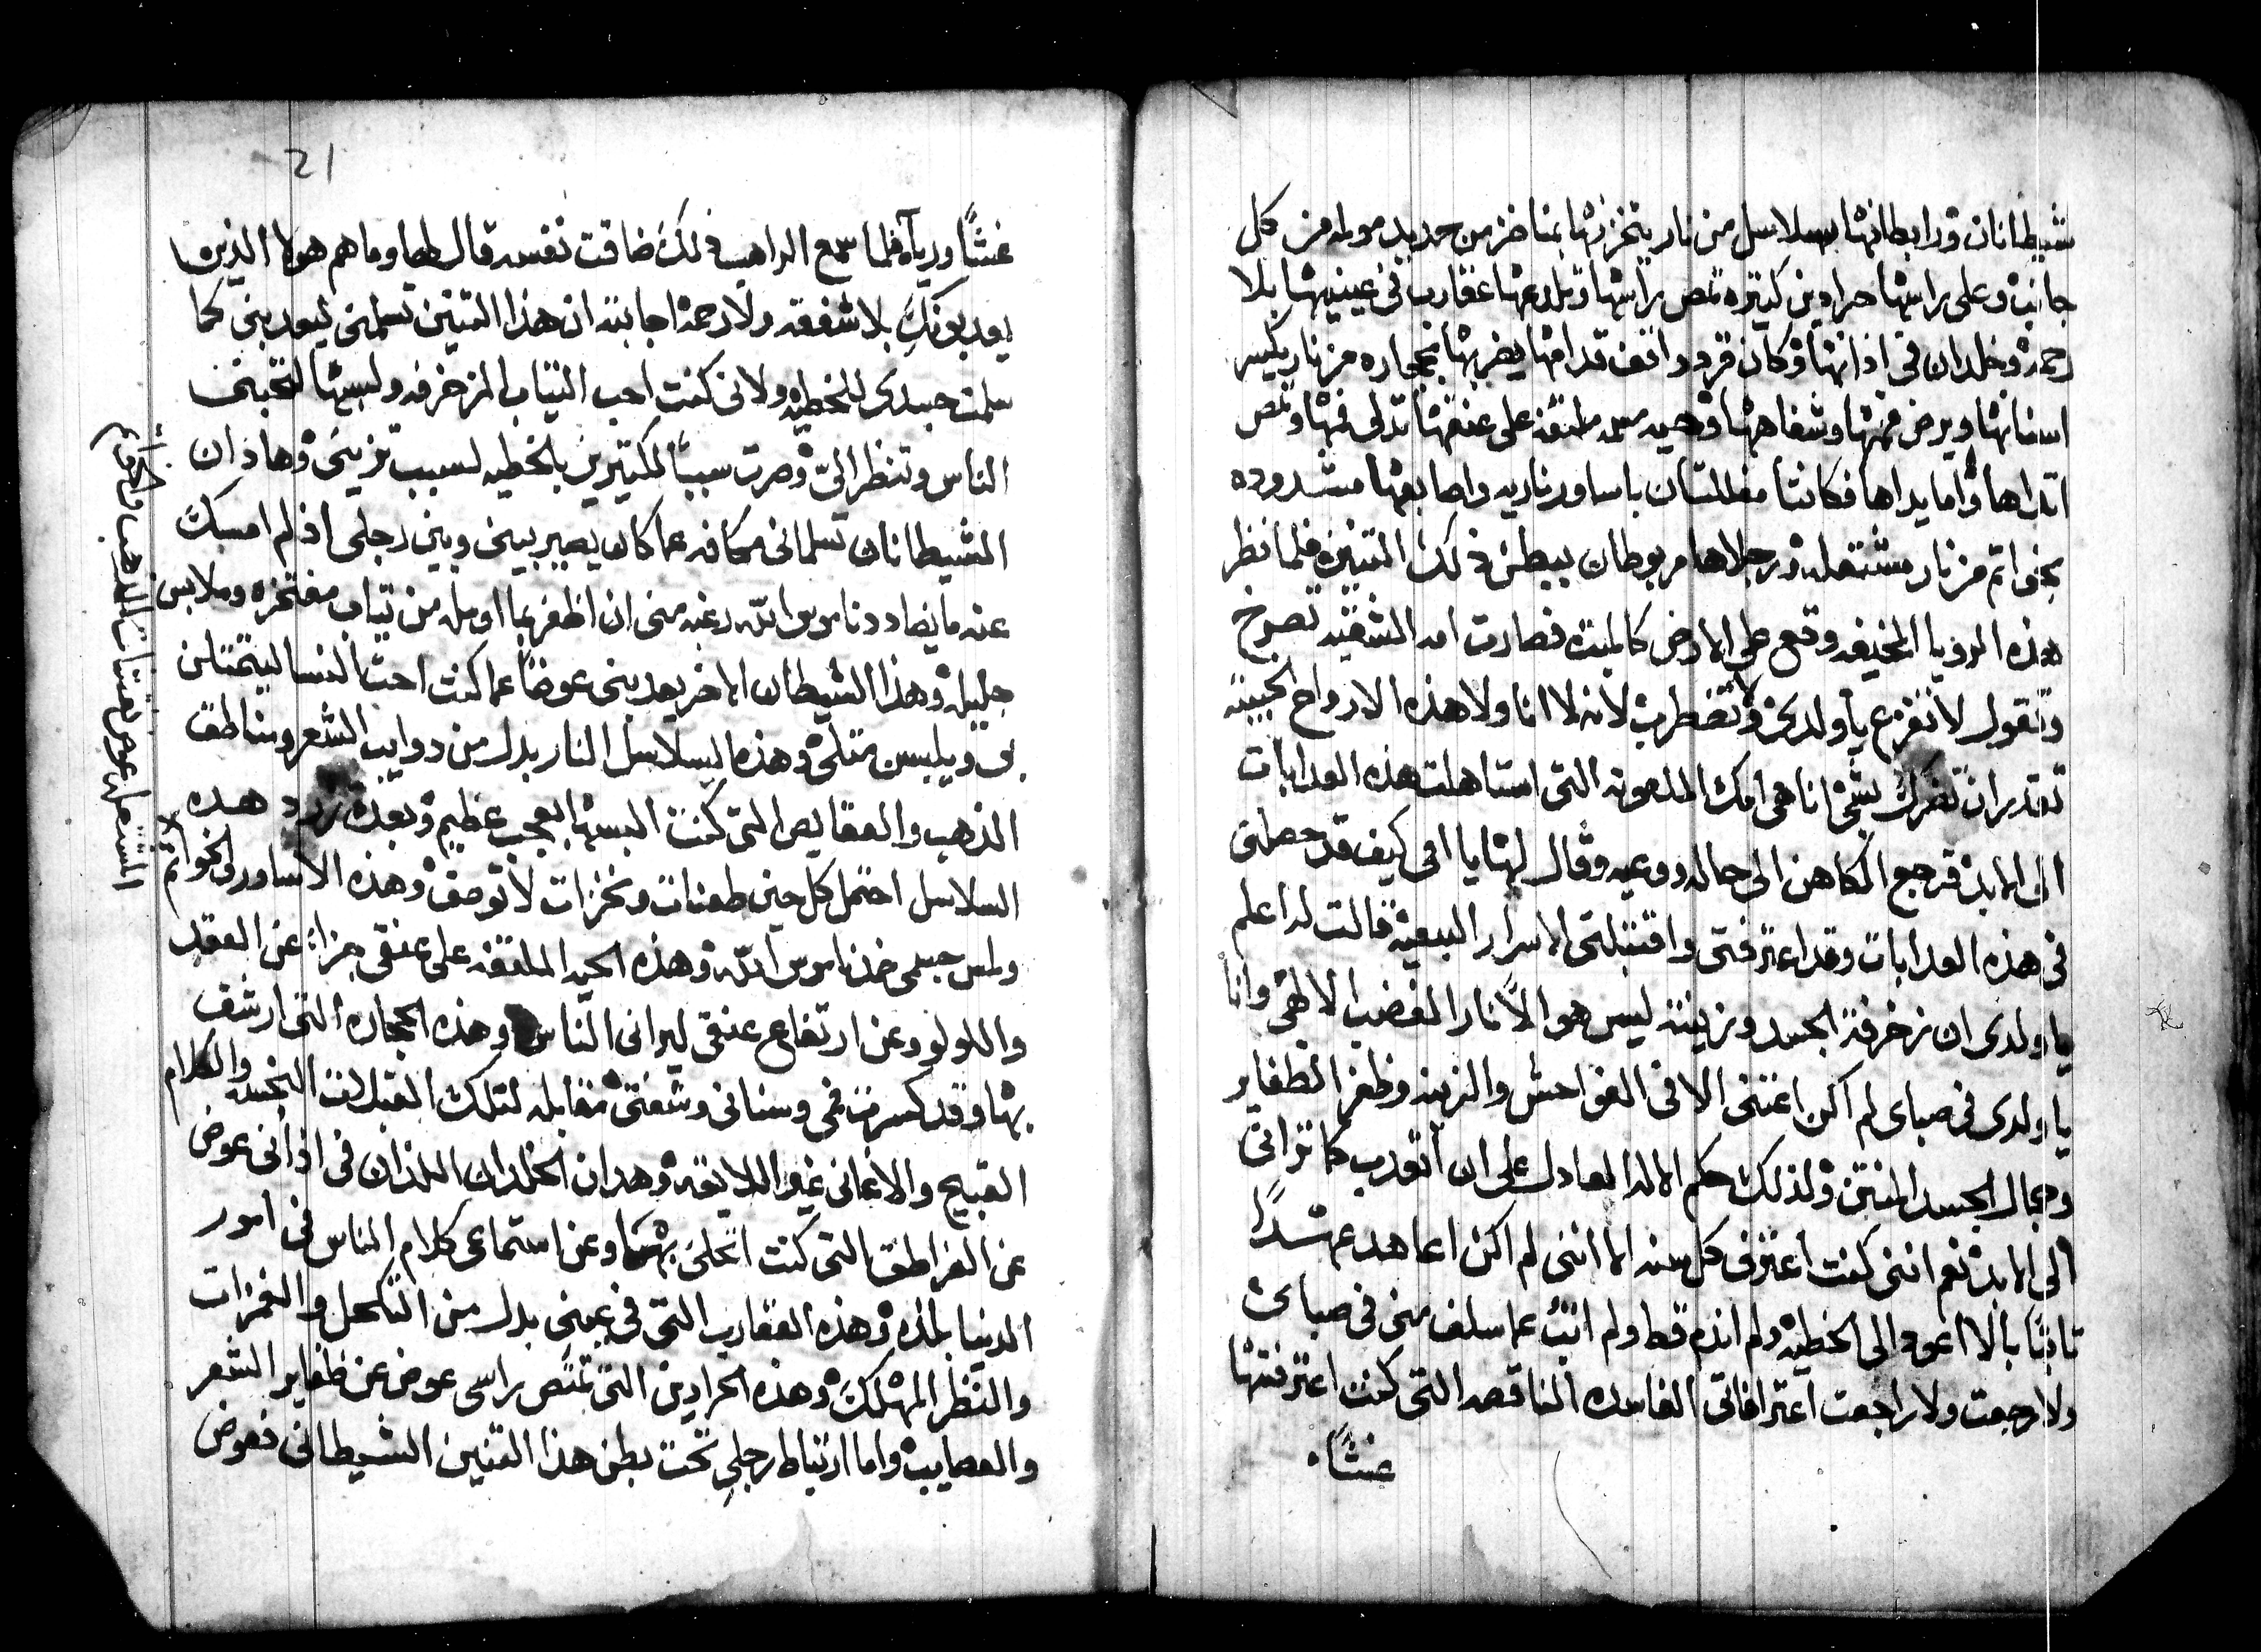 شيطانان قد رابطانها بسلاسل من نار ينخزنها بمناخز من حديد مولمه من كل
جانب وعلى راسها حرادين كتيره تمص راسها وتلدعها عقارب فى عينيها بلا
رحمه وخلدان فى اذانها وكان قرد واقف قدامها يضربها بحجاره من نار يكسر
اسنانها ويرض فمها وشفاهها وحيه مسمه ملتفه على عنقها تدلى فمها وتمص
اتداها واما يداها فكانتا مغللتان باساور ناريه واصابعها مشدوده
بخواتم من نار مشتعله ورجلاها مربوطان ببطن ذلك التنين فلما نظر
هذه الرويا المخيفه وقع على الارض كالميت فصارت امه الشقيه تصرخ
وتقول لا تفزع يا ولدى ولا تضطرب لانه لا انا ولا هذه الارواح الخبيثه
تقدر ان تضرك بشى انا هى امك الملعونه التى استاهلت هذه العدابات
الى الابد فرجع الكاهن الى حاله ووعيه وقال لها يا امى كيف قد حصلتى
فى هذه العدابات وقد اعترفتى واقتبلتى الاسرار البيعيه قالت له اعلم
يا ولدى ان زخرفة الجسد وزينته ليس هو الا نار الغضب الالاهى وانا
يا ولدى فى صباى لم اكن اعتنى الا فى الفواحش والزينه وظفر الظفاير
وجمال الجسد المنتن ولذلك حكم الاله العادل على ان اتعدب كما ترانى
الى الابد نعم اننى كنت اعترف كل سنه الا اننى لم اكن اعاهد عهدًا
تابتًا بالا اعود الى الخطيه ولم اندم قط ولم اتب عما سلف منى فى صباى
ولا رجعت ولا راجعت اعترافاتى الفاسده الناقصه التى كنت اعترفتها
غشًا
21
غشًا ورياء فلما سمع الراهب ذلك ضاقت نفسه قال لها وما هم هولا الذين
يعدبونك بلا شفقه ولا رحمه اجابته ان هذا التنين تسلمنى ليعدبنى كما
سلمت جسدى للخطيه ولانى كنت احب التياب المزخرفه ولبستها لتحبنى
الناس وتنظر الىّ وصرت سببًا لكتيرين بالخطيه لسبب تزينى وهاذان
الشيطانان تسلمانى مكافه عما كان يصير بينى وبين رجلى اذ لم امسك
عنه ما يضادد ناموس الله رغبه منى ان اظفر بما اومله من تياب مفتخره وملابس
جليله وهذا الشيطان الاخر يعدبنى عوضًا عما كنت احت النسا ليتمتلن
بى ويلبسن متلى وهذه السلاسل النار بدل من دوايب الشعر ومناطق
الذهب والعقايص التى كنت البسها بعجب عظيم وبعدد زرد هده
السلاسل احتمل كل حين طعنات ونخزات لا توصف وهذه الاساور والخواتم
ولمس جسمى ضد ناموس الله وهذه الحيه الملتفه على عنقى جزاءً عن العقد
واللولو وعن ارتفاع عنقى ليرانى الناس وهذه الحجاره التى ارشف
بها وقد كسرت فمى وسنانى وشفتى مقابله لتلك القبلات النجسه والكلام
القبيح والاغانى غير اللايقه وهدان الخلدان اللذان فى اذانى عوض
عن القراطق التى كنت اتحلى بها وعن استماعى كلام الناس فى امور
الدنيا بلذه وهذه العقارب التى فى عينى بدل من التكحل والغمزات
والنظر المهلك وهذه الحرادين التى تمتص راسى عوض عن ظفاير الشعر
والعصايب واما ارتباط رجلى تحت بطن هذا التنين الشيطانى فعوض
المشتعله عوض لقتنات الذهب والخواتم